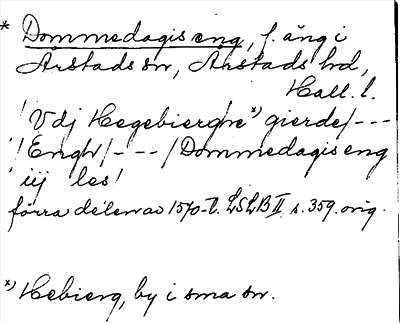 * Dommedagis eng, f. äng i
Årstads sn, Årstads hd,
Hall. l.
/Vdj Hegebierghe *) gierde/---
/Engh/---/Dommedagis eng
iij les/
förra delen av 1570-t. LSLB II, s. 359. orig.
*) Hebierg, by i sma sn.